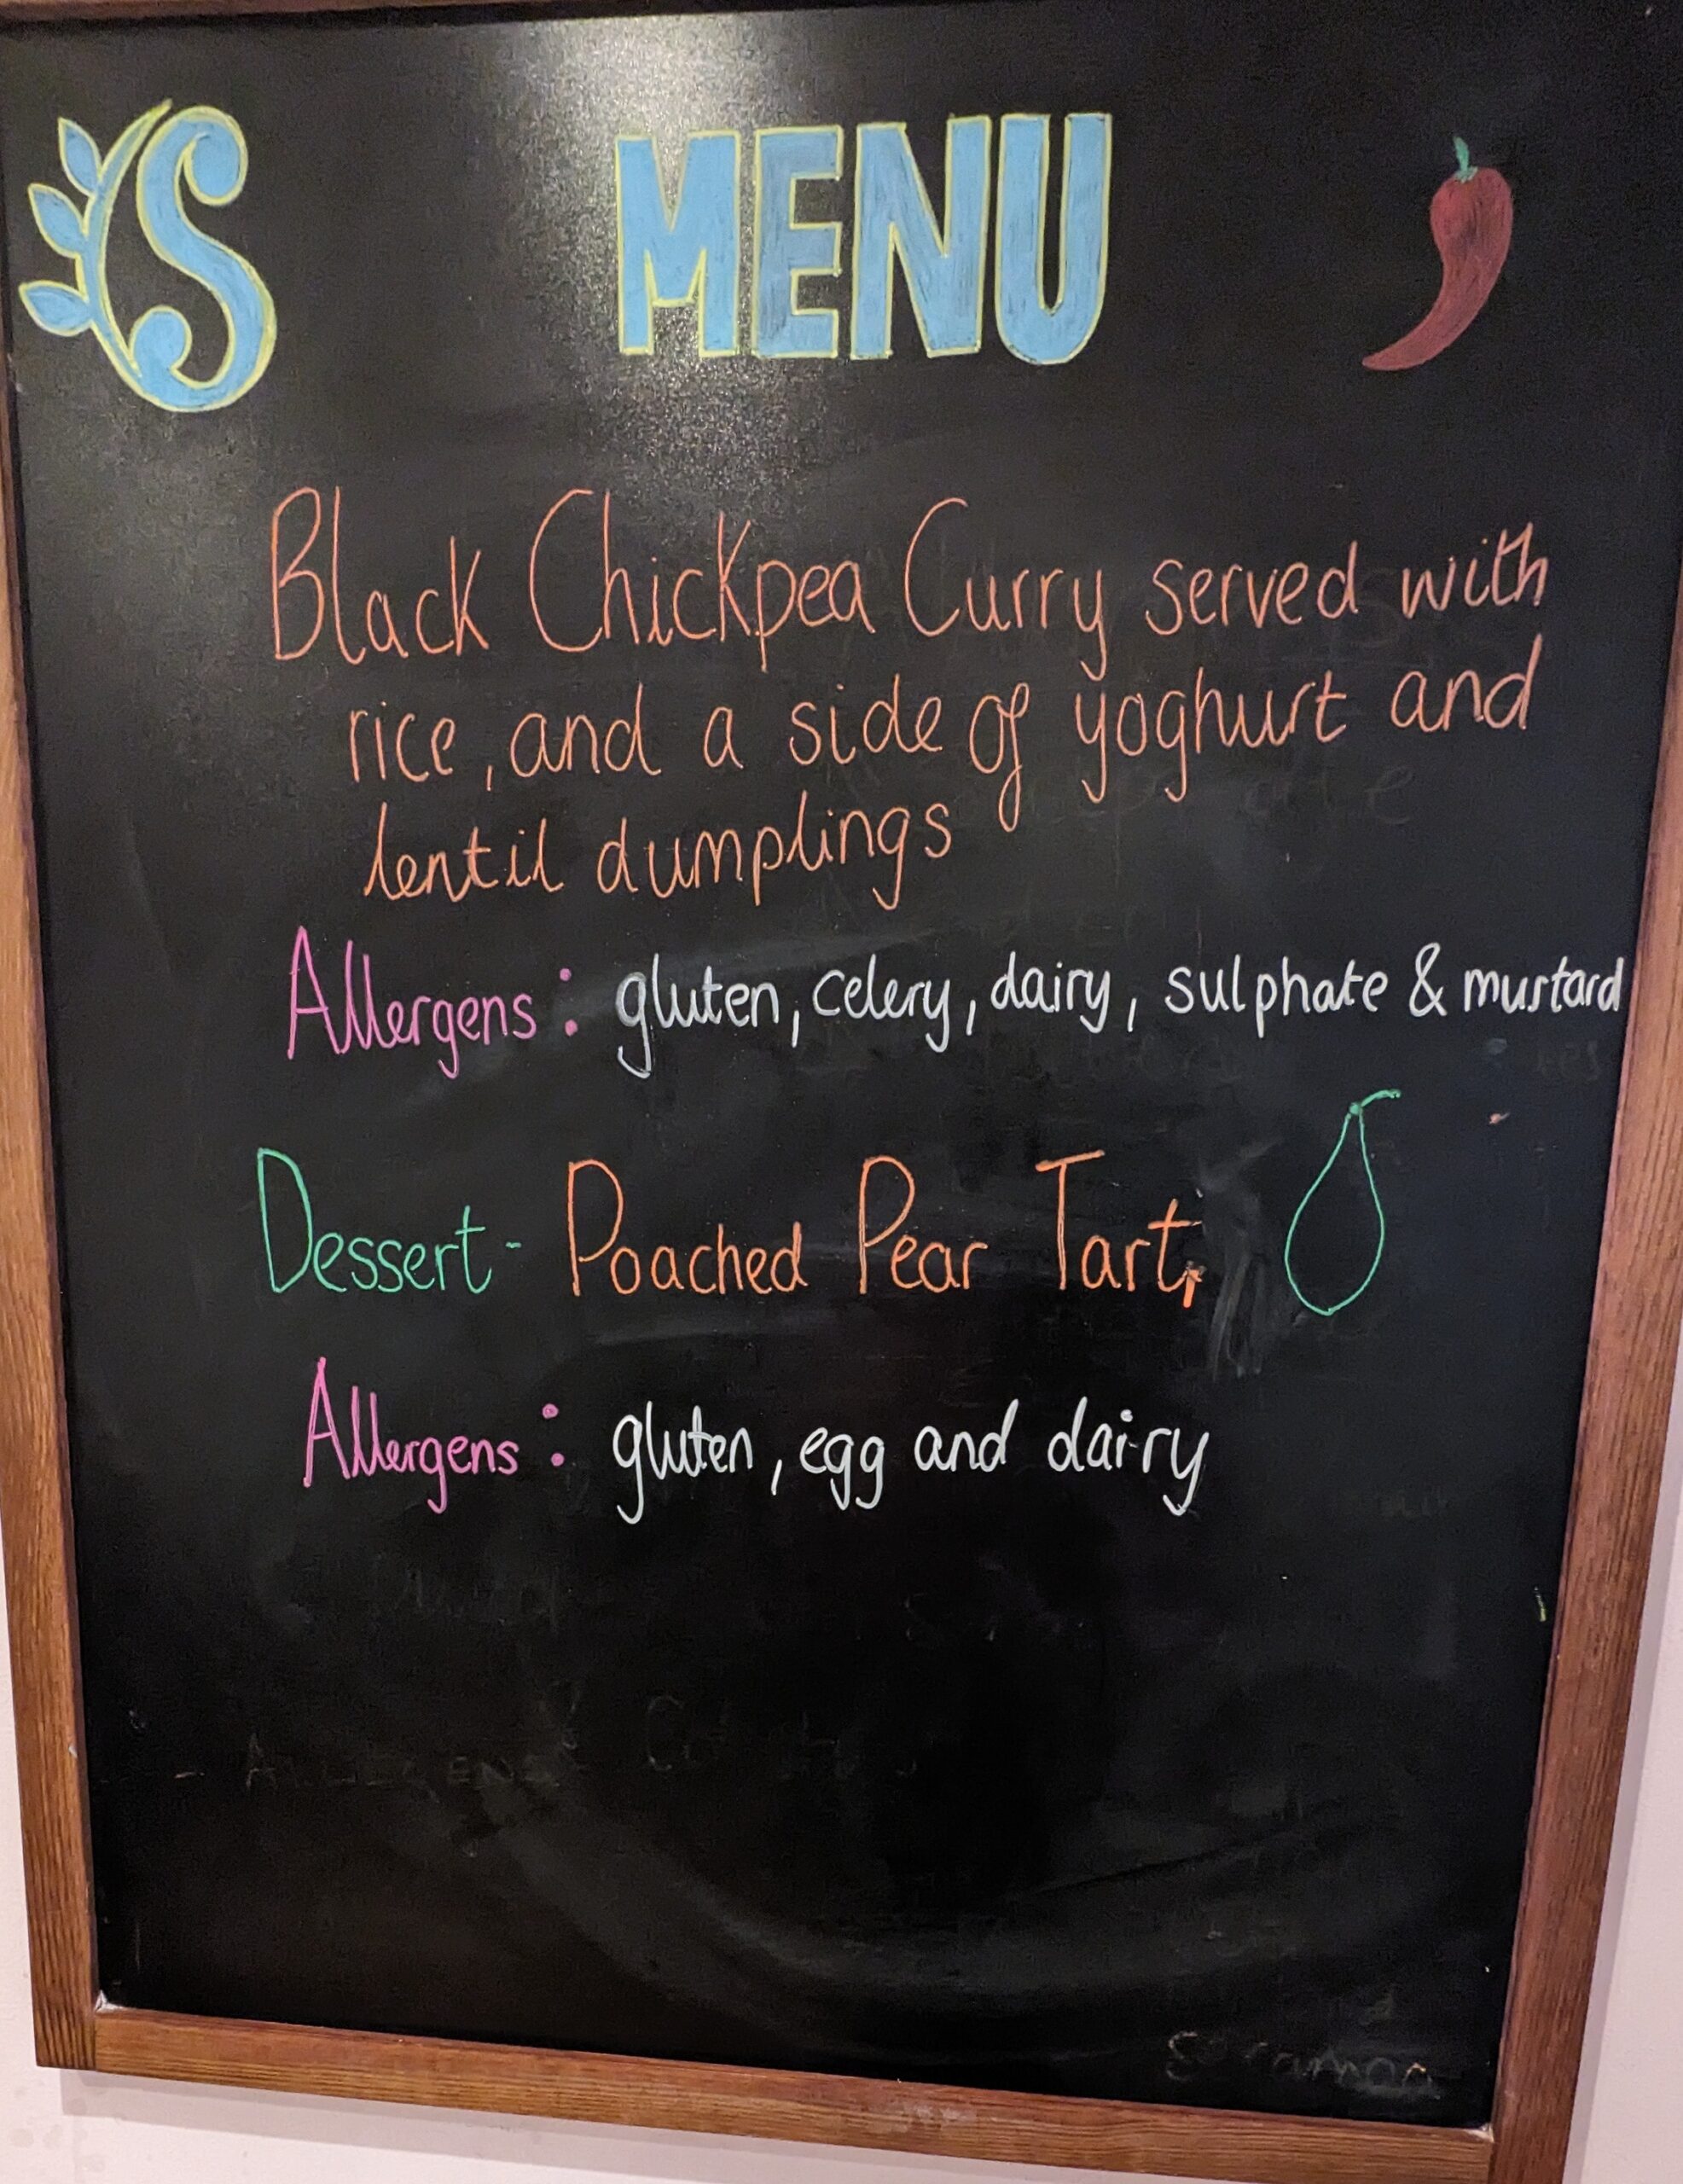 S MENU
Black Chickpea Curry served with
rice, and a side of yoghurt and
lentil dumplings
Allergens: gluten, celery, dairy, sulphate & mustard
Dessert - Poached Pear Tart,
Allergens: gluten, egg and dairy